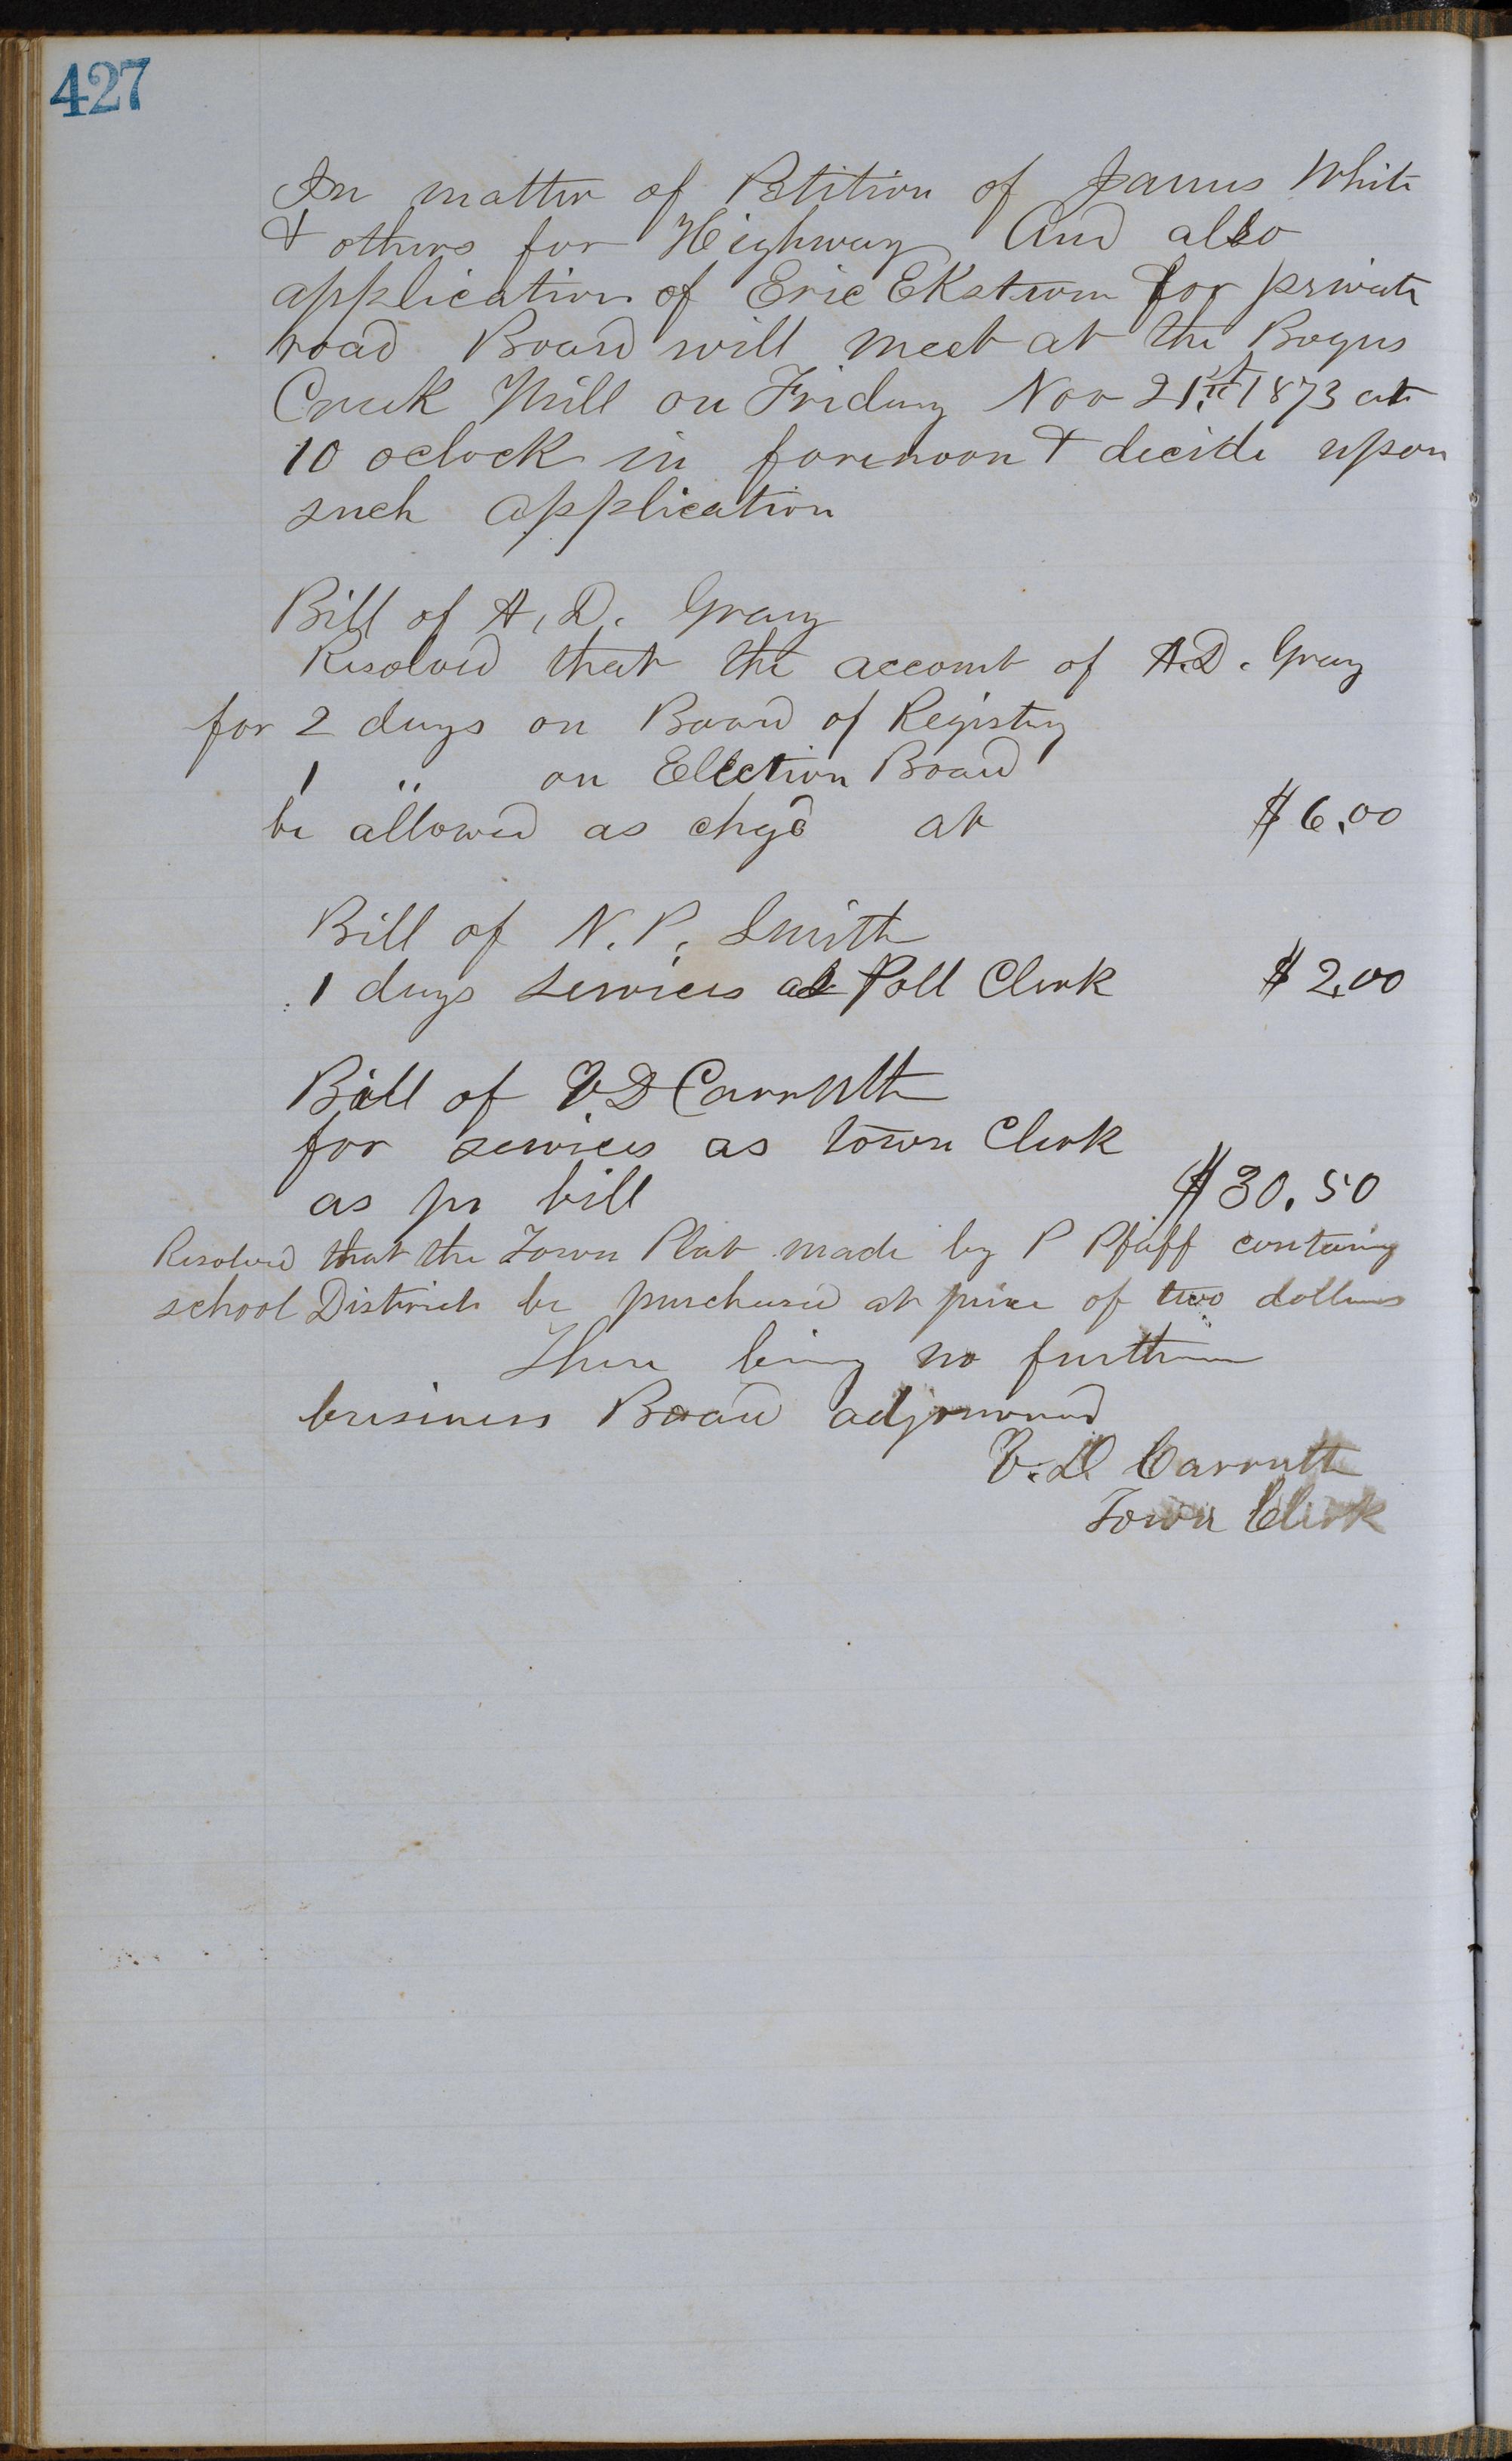 427
In matter of Petition of James White
& others for Highway And also
application of Eric Ekstrom for private
road Board will meet at the Bogus
Creek Mill on Friday Nov 21st 1873 at
10 oclock in forenoon & decide upon
such application
Bill of A. D. Gray
Resolved that the account of A.D. Gray
for 2 days on Board of Registry
1 " on Election Board
be allowed as chgd at $6.00
Bill of N. P. Smith
1 days services as Poll Clerk $2.00
Bill of V D Carruth
for services as town Clerk
as pr bill $30.50
Resolved that the Town Plat made by P Pfaff containg
school Districts be purchased at price of two dollars
There being no further
business Board adjourned
V. D. Carruth
Town Clerk